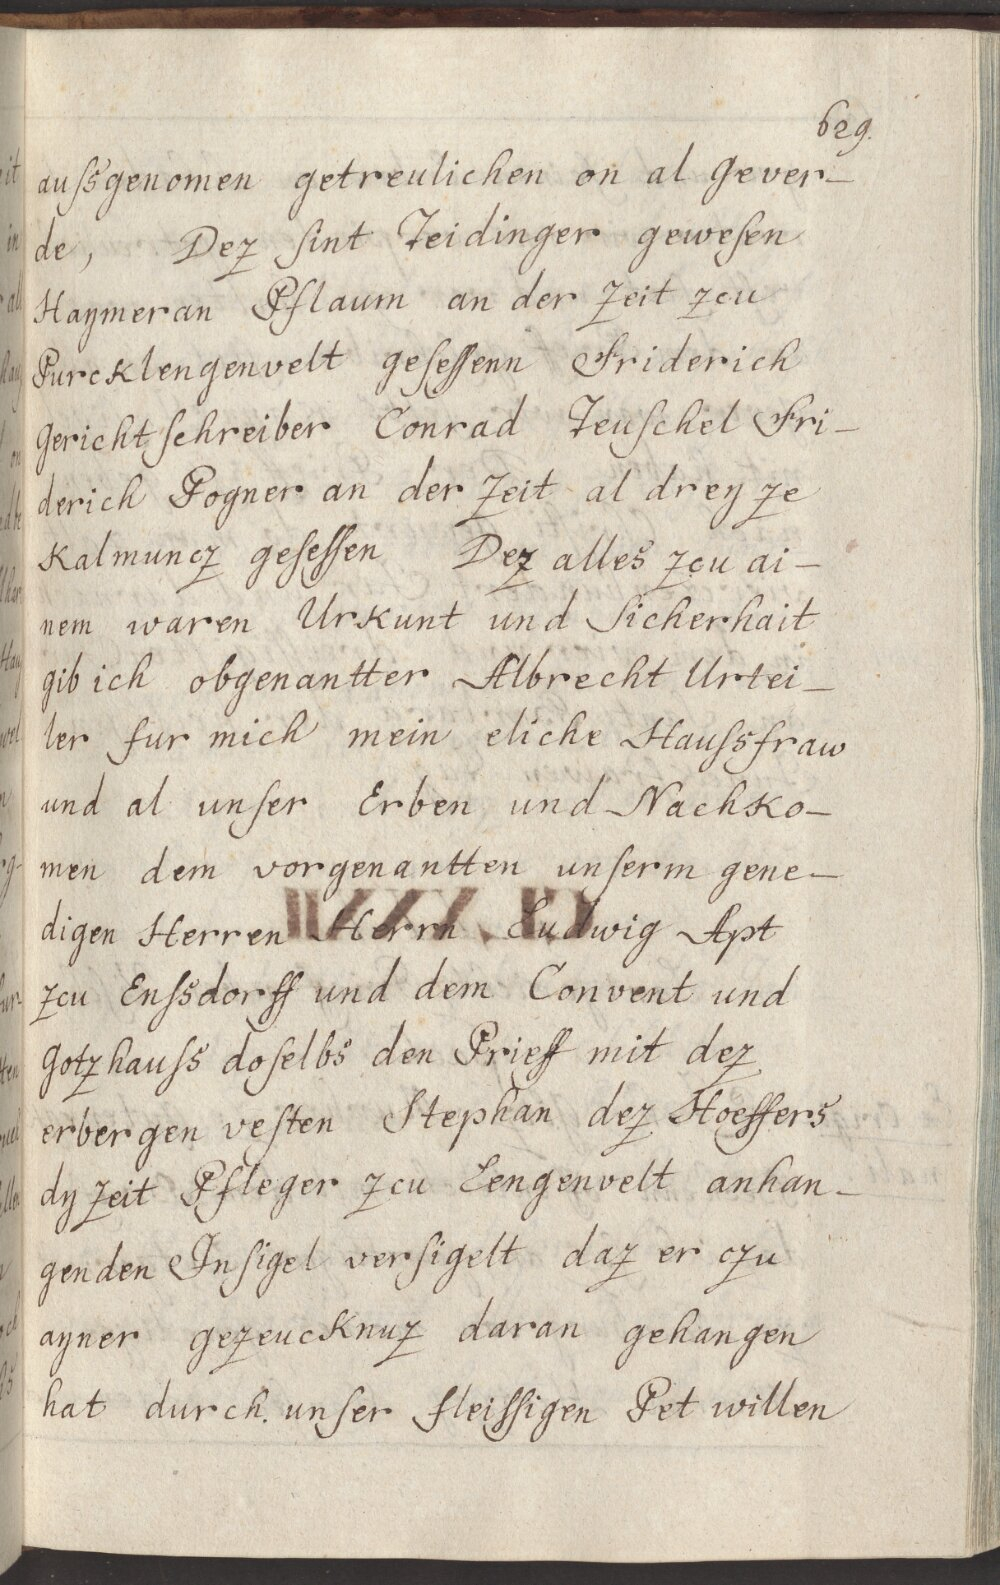 629.
ausſgenomen getreulichen on al Gever-
de, Dez ſint Teidinger geweſen
Haymeran Pflaum an der Zeit zcu
Purcklengenvelt geſeſſenn Friderich
Gerichtſchreiber Conrad Teuſchel Fri-
derich Pogner an der Zeit al drey ze
Kalmuncz geſeſſen Dez alles zcu ai-
nem waren Urkunt und Sicherhait
gib ich obgenantter Albrecht Urtei-
ler fur mich mein eliche Hauſsfraw
und al unſer Erben und Nachko-
men dem vorgenantten unſerm gene-
digen Herren Herrn Ludwig Apt
zcu Enſsdorff und dem Convent und
Gotzhauſs doſelbs den Prieff mit dez
erbergen veſten Stephan dez Hoeffers
dy Zeit Pfleger zcu Lengenvelt anhan-
genden Inſigel verſigelt daz er czu
ayner gezeucknuz daran gehangen
hat durch unſer fleiſſigen Pet willen